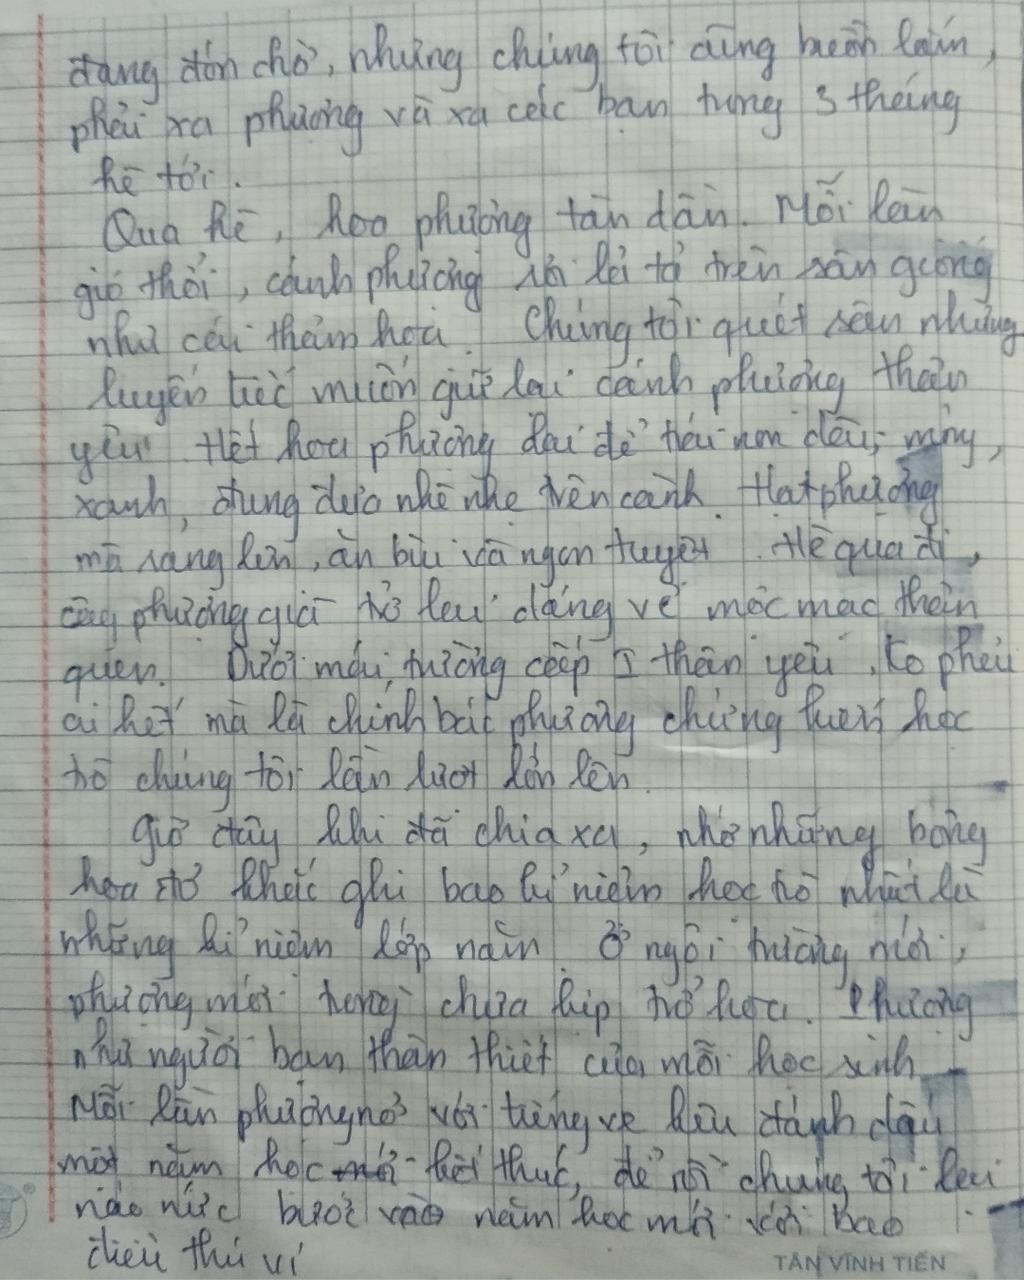 đang đón chờ, nhưng chúng tôi cũng buồn lắm,
phải xa phượng và xa các bạn tưng 3 tháng
hè tới.
Qua hè, hoa phượng tàn dần. Mỗi lần
gió thổi, cánh phượng rơi lả tả trên sân giống
như cái thảm hoa. Chúng tôi quét sân nhưng
luyến tiếc muốn giữ lại cánh phượng thân
yêu. Hết hoa phượng lại để trái non dâu, mỏng,
xanh, đung đưa nhè nhẹ trên cành. Hạt phượng
mà rang lên, ăn bùi và ngon tuyệt. Hè qua đi,
cây phượng già trở lại dáng vẻ mộc mạc thân
quen. Dưới mái trường cấp I thân yêu, ko phải
ai hết mà là chính bác phượng chứng kiến học
trò chúng tôi lần lượt lớn lên.
Giờ đây khi đã chia xa, nhớ những bông
hoa đỏ khắc ghi bao kỉ niệm học trò nhất là
những kỉ niệm lớp năm. Ở ngôi trường mới,
phượng mới trồng chưa kịp trổ hoa. Phượng
như người bạn thân thiết của mỗi học sinh.
Mỗi lần phượng nở với tiếng ve kêu đánh dấu
một năm học kết thúc, để rồi chúng tôi lại
náo nức bước vào năm học mới với bao
điều thú vị
TÂN VĨNH TIẾN